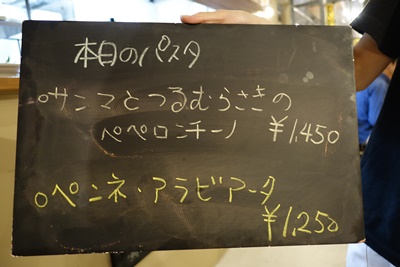 本日のパスタ
○サンマとつるむらさきの
ペペロンチーノ ¥1,450
○ペンネ・アラビアータ
¥1,250